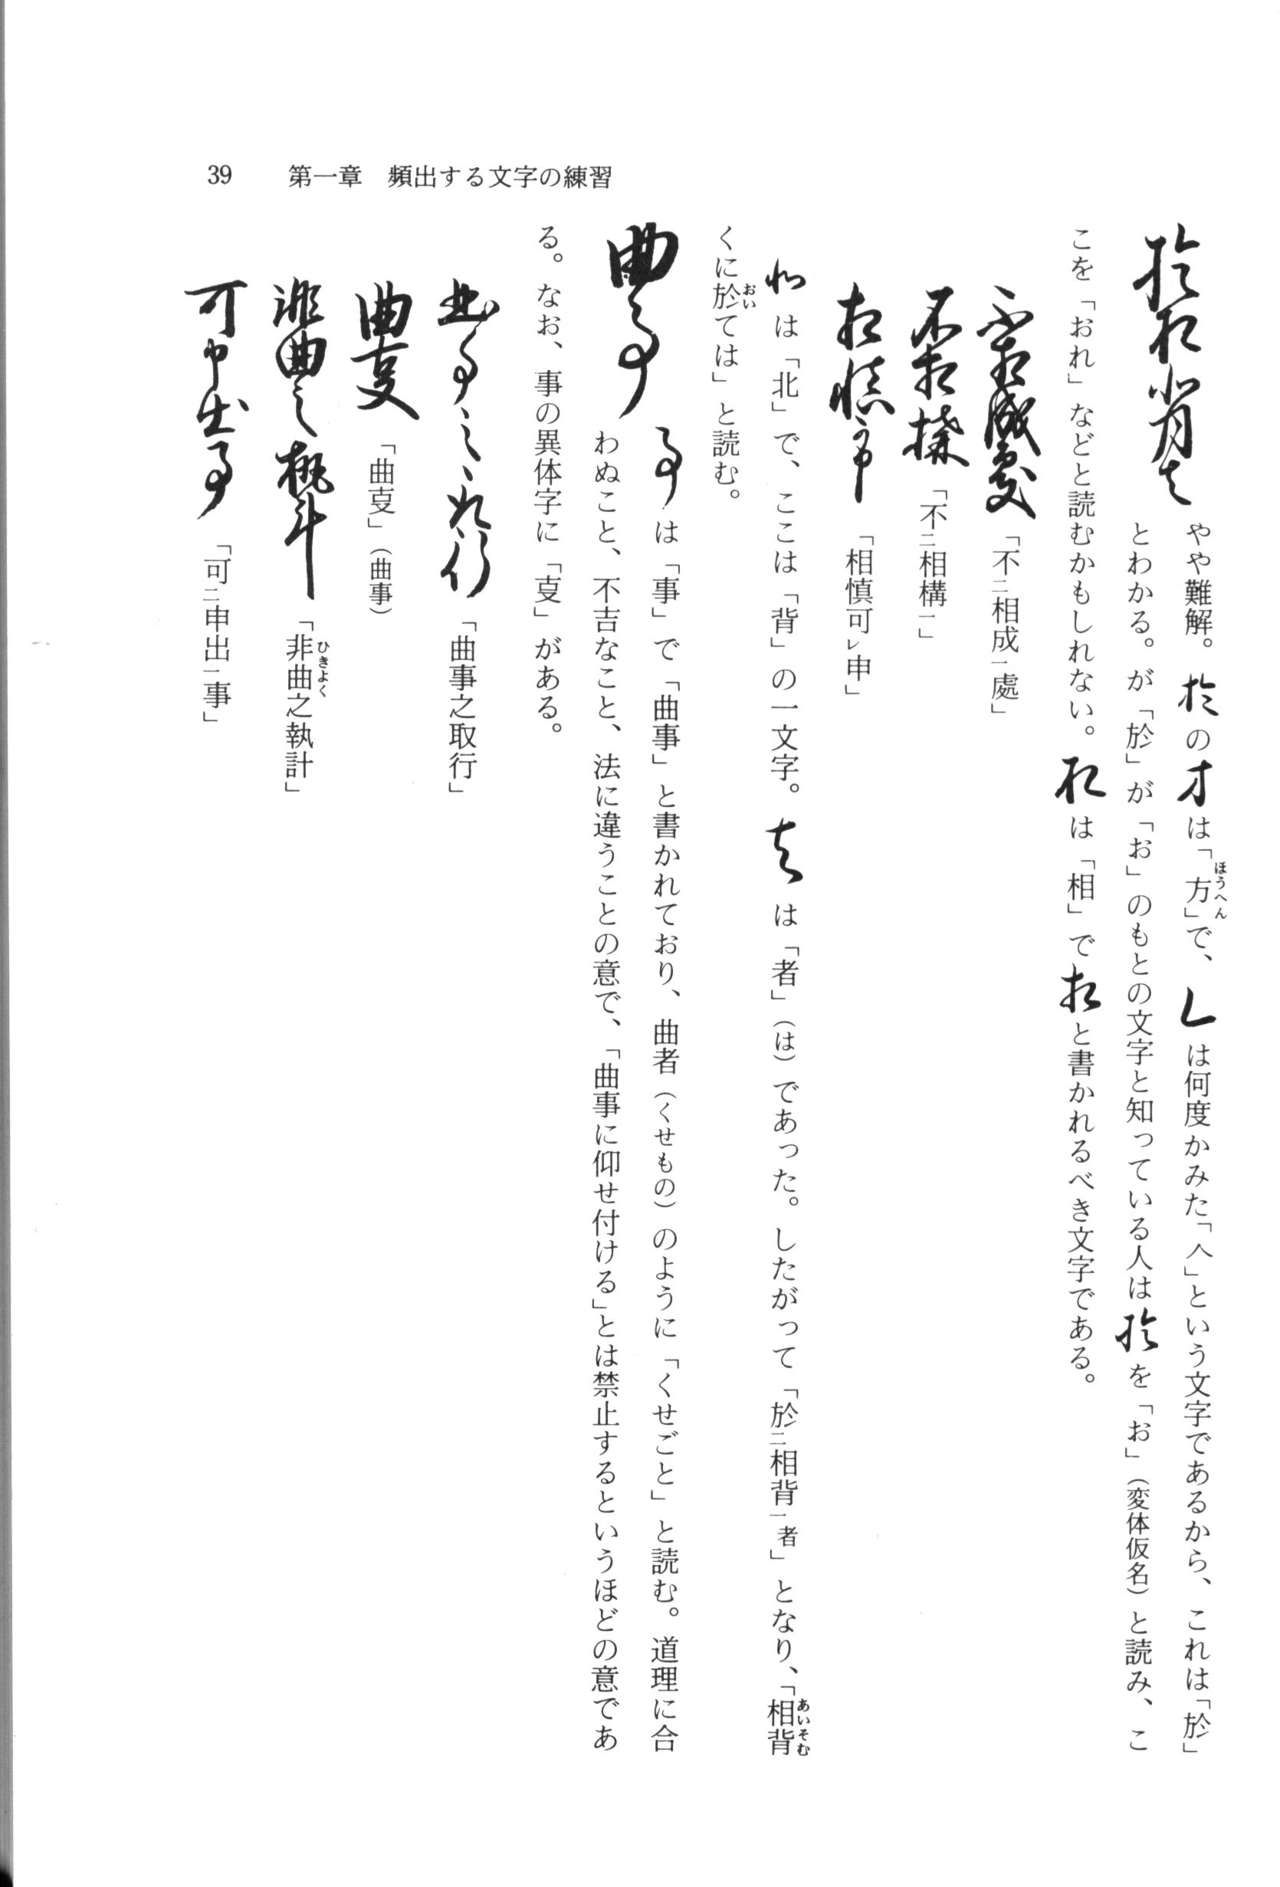 39　第一章　頻出する文字の練習
於相背者
やや難解。 於 の 方 は「方」で、 人 は何度かみた「人」という文字であるから、これは「於」
とわかる。が「於」が「お」のもとの文字と知っている人は 於 を「お」（変体仮名）と読み、こ
こを「おれ」などと読むかもしれない。 相 は「相」で 相 と書かれるべき文字である。
不相成處「不二相成一處」
不相構「不二相構一」
相慎可申「相慎可レ申」
北 は「北」で、ここは「背」の一文字。 者 は「者」（は）であった。したがって「於二相背一者」となり、「相背
くに於ては」と読む。
曲事
事 は「事」で「曲事」と書かれており、曲者（くせもの）のように「くせごと」と読む。道理に合
わぬこと、不吉なこと、法に違うことの意で、「曲事に仰せ付ける」とは禁止するというほどの意であ
る。なお、事の異体字に「叓」がある。
曲事之取行「曲事之取行」
曲叓「曲叓」（曲事）
非曲之執計「非曲之執計」
可申出事「可二申出一事」